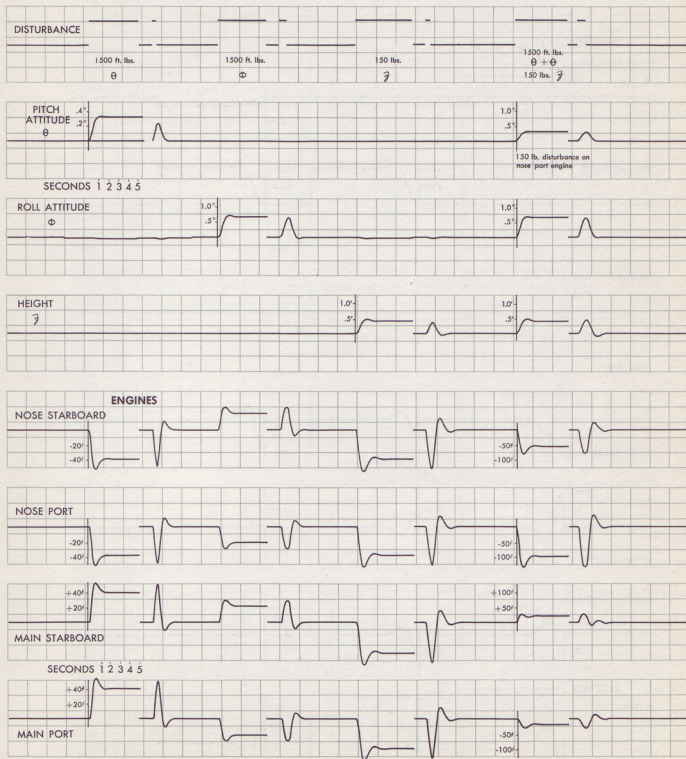 DISTURBANCE
1500 ft. lbs.
θ
1500 ft. lbs.
Φ
150 lbs.
𝓏
1500 ft. lbs.
θ + Φ
150 lbs. 𝓏
PITCH
ATTITUDE
θ
.4°
.2°
1.0°
.5°
150 lb. disturbance on
nose port engine
SECONDS 1 2 3 4 5
ROLL ATTITUDE
Φ
1.0°
.5°
1.0°
.5°
HEIGHT
𝓏
1.0'
.5'
1.0'
.5'
ENGINES
NOSE STARBOARD
-20#
-40#
-50#
-100#
NOSE PORT
-20#
-40#
-50#
-100#
+40#
+20#
+100#
+50#
MAIN STARBOARD
SECONDS 1 2 3 4 5
+40#
+20#
MAIN PORT
-50#
-100#